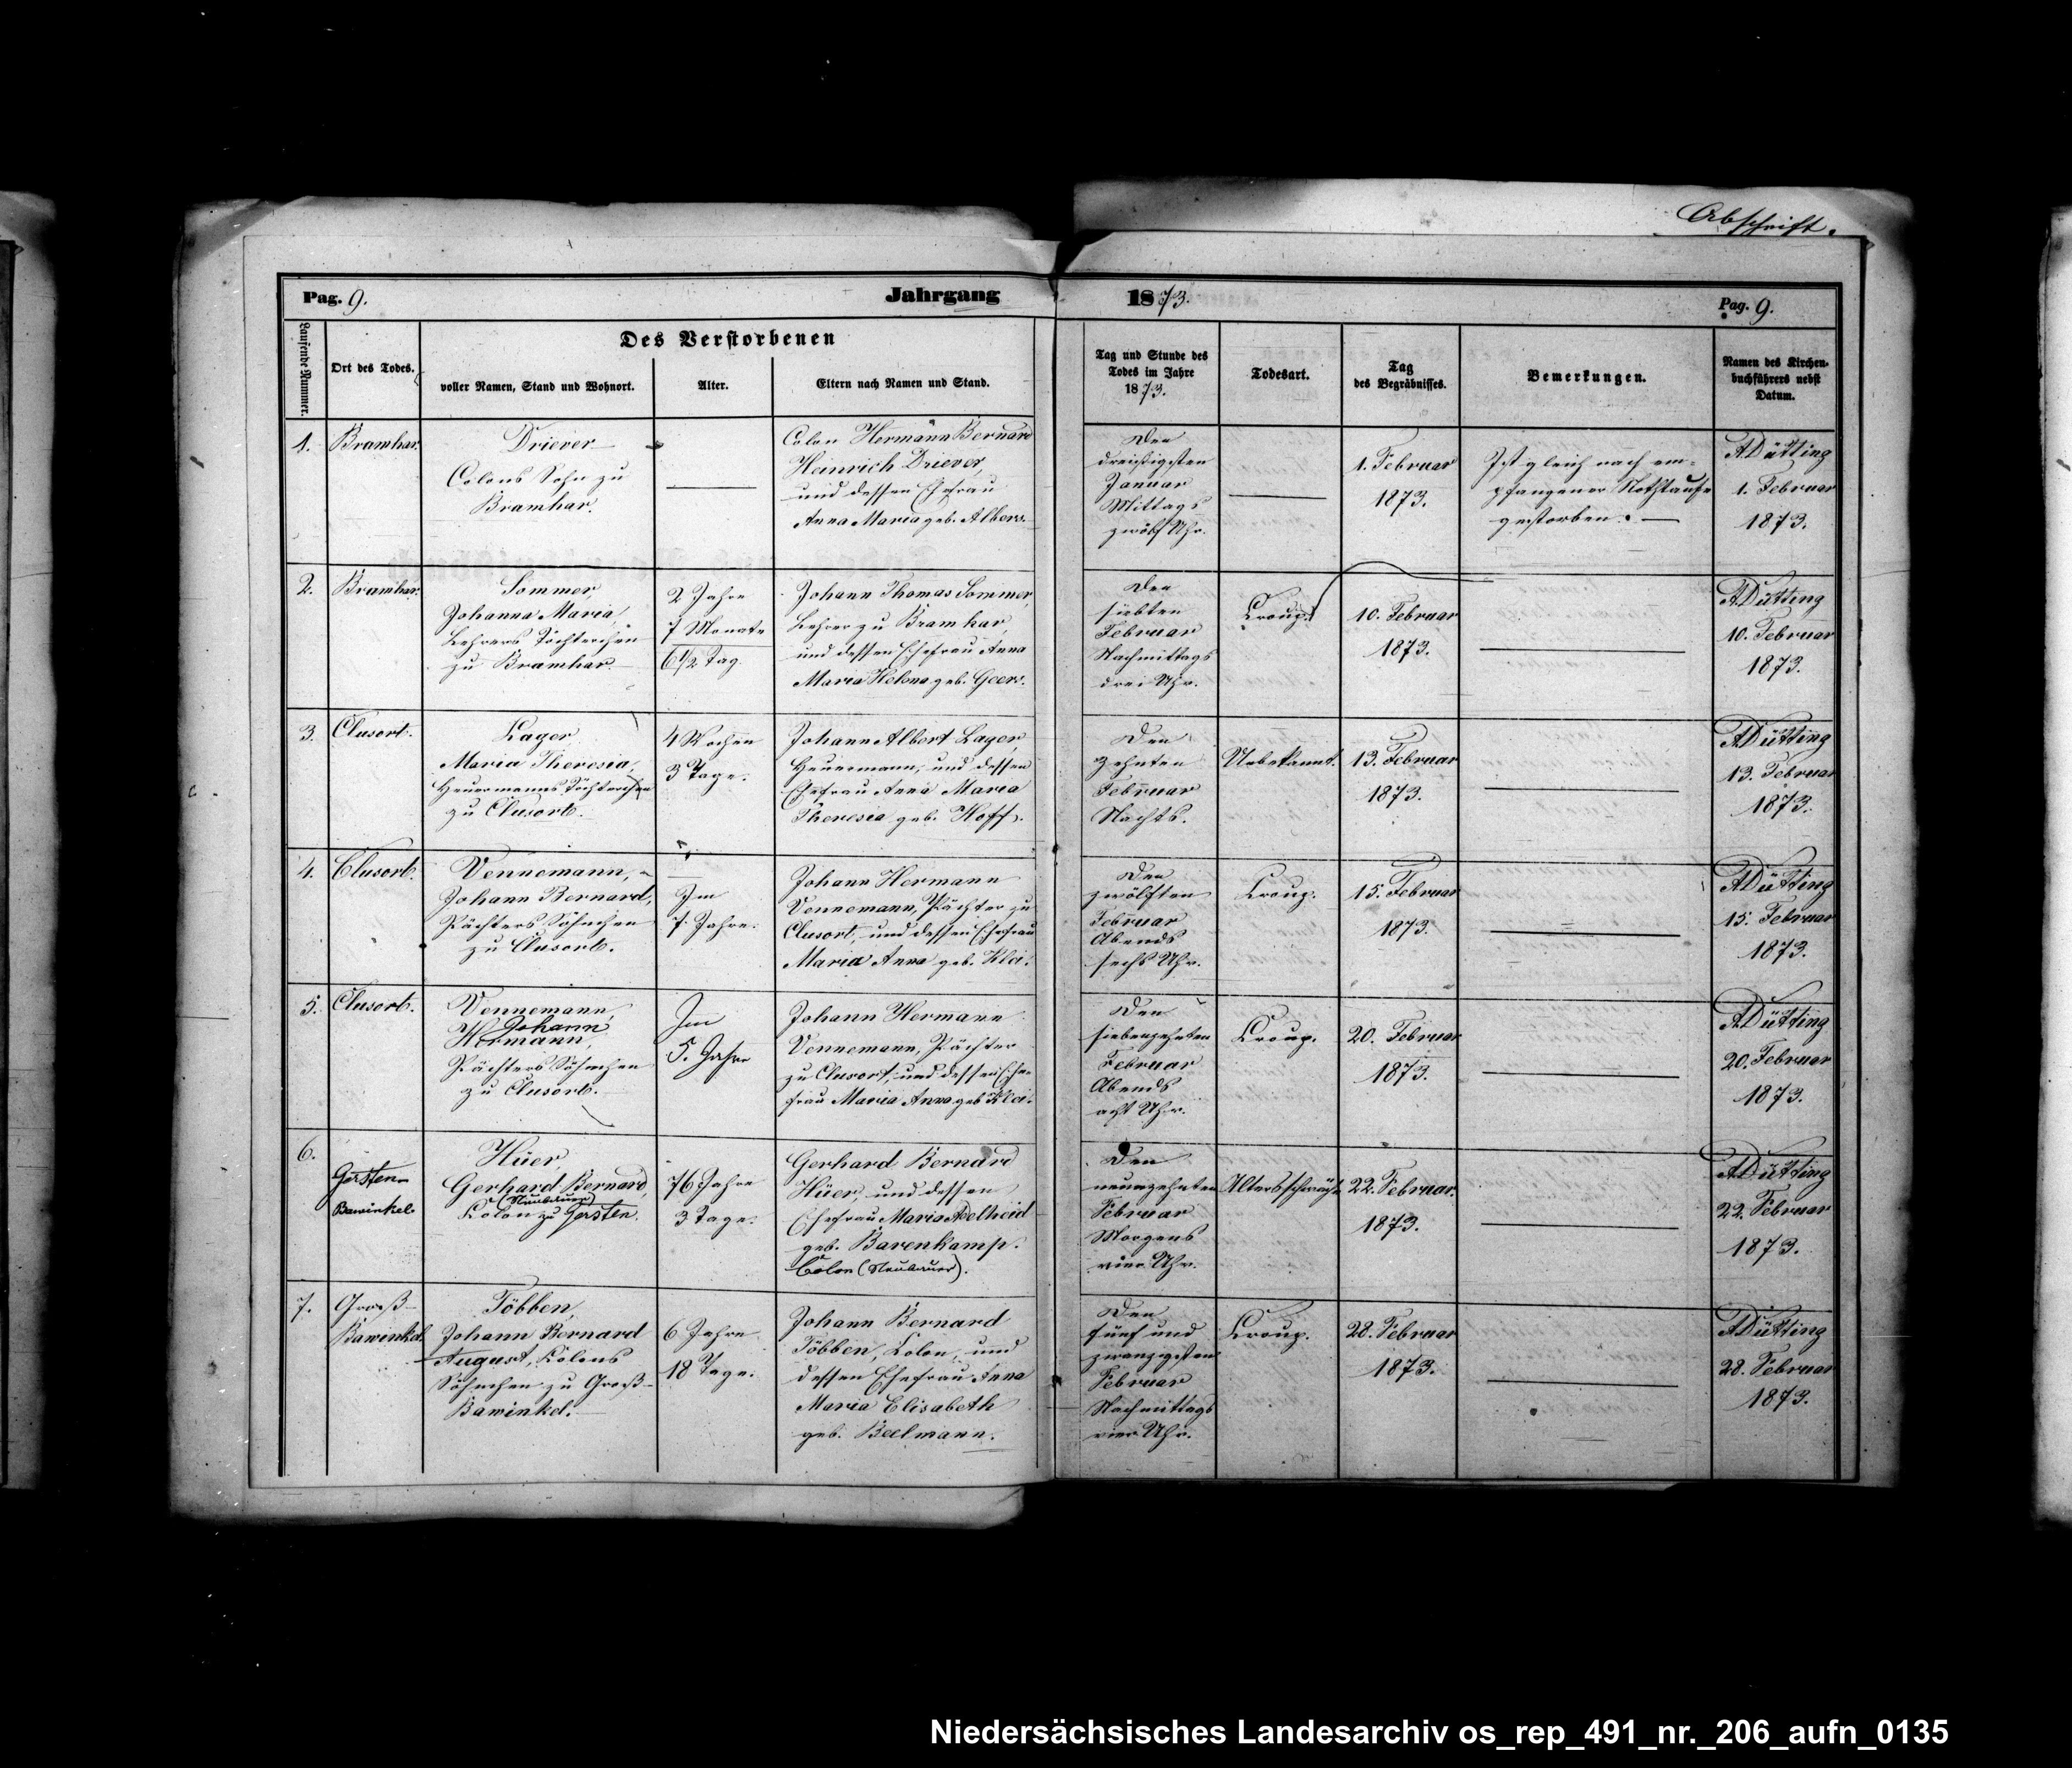 Abschrift.
Pag. 9.
Jahrgang
1873.
Pag. 9.
Laufende Nummer.
Ort des Todes.
Des Verstorbenen
voller Namen, Stand und Wohnort.
Alter.
Eltern nach Namen und Stand.
Tag und Stunde des
Todes im Jahre
1873.
Todesart.
Tag
des Begräbnisses.
Bemerkungen.
Namen des Kirchen-
buchführers nebst
Datum.
1.
Bramhar.
Driever
Colons Sohn zu
Bramhar.
Colon Hermann Bernard
Heinrich Driever,
und dessen Ehefrau
Anna Maria geb. Albers.
Den
dreißigsten
Januar
Mittags
zwölf Uhr.
1. Februar
1873.
Ist gleich nach em-
pfangener Nothtaufe
gestorben. —
A Dütting
1. Februar
1873.
2.
Bramhar.
Sommer,
Johanna Maria,
Lehrers Töchterchen
zu Bramhar.
2 Jahre
7 Monate
6 1/2 Tag.
Johann Thomas Sommer,
Lehrer zu Bramhar,
und dessen Ehefrau Anna
Maria Helena geb. Geers.
Den
siebten
Februar
Nachmittags
drei Uhr.
Croup.
10. Februar
1873.
A Dütting
10. Februar
1873.
3.
Clusort.
Lager
Maria Theresia,
Heuermanns Töchterchen
zu Clusort.
4 Wochen
3 Tage.
Johann Albert Lager,
Heuermann, und dessen
Ehefrau Anna Maria
Theresia geb. Hoff.
Den
zehnten
Februar
Nachts.
Unbekannt.
13. Februar
1873.
A Dütting
13. Februar
1873.
4.
Clusort.
Vennemann,
Johann Bernard,
Pächters Söhnchen
zu Clusort.
Im
7. Jahre.
Johann Hermann
Vennemann, Pächter zu
Clusort, und dessen Ehefrau
Maria Anna geb. Klei.
Den
zwölften
Februar
Abends
sechs Uhr.
Croup.
15. Februar
1873.
A Dütting
15. Februar
1873.
5.
Clusort.
Vennemann,
Johann
Hermann,
Pächters Söhnchen
zu Clusort.
Im
5. Jahre
Johann Hermann
Vennemann, Pächter
zu Clusort, und dessen Ehe-
frau Maria Anna geb Klei.
Den
siebenzehnten
Februar
Abends
acht Uhr.
Croup.
20. Februar
1873.
A Dütting
20. Februar
1873.
6.
Gersten-
Bawinkel.
Hüer,
Gerhard Bernard,
(Neubauer)
Colon zu Gersten.
76 Jahre
3 Tage.
Gerhard Bernard
Hüer, und dessen
Ehefrau Maria Adelheid
geb. Barenkamp.
Colon (Neubauer).
Den
neunzehnten
Februar
Morgens
vier Uhr.
Altersschwäche
22. Februar.
1873.
A Dütting
22. Februar
1873.
7.
Groß-
Bawinkel.
Többen,
Johann Bernard
August, Colons
Söhnchen zu Groß-
Bawinkel.
6 Jahre
18 Tage.
Johann Bernard
Többen, Colon, und
dessen Ehefrau Anna
Maria Elisabeth
geb. Beelmann.
Den
fünf und
zwanzigsten
Februar
Nachmittags
vier Uhr.
Croup.
28. Februar
1873.
A Dütting
28. Februar
1873.
Niedersächsisches Landesarchiv os_rep_491_nr._206_aufn_0135